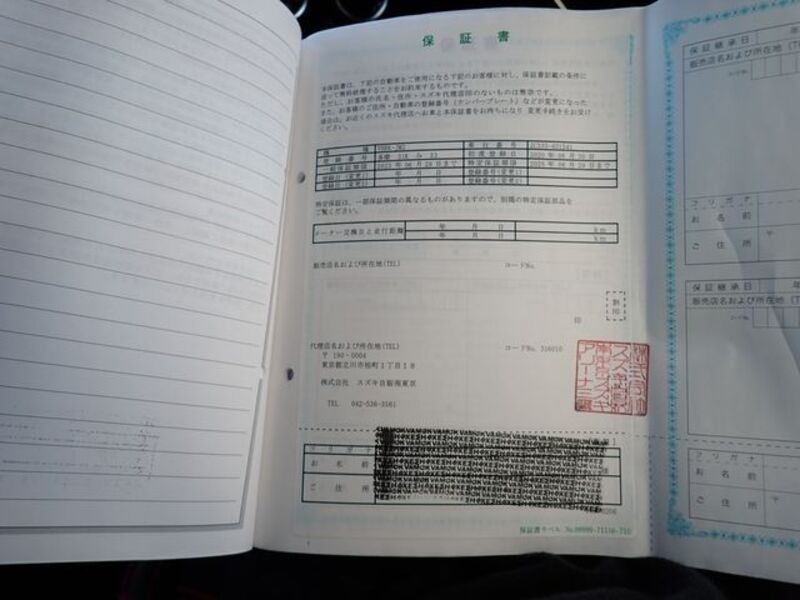 保証書
本保証書は、下記の自動車をご使用になる下記のお客様に対し、保証書記載の条件に
従って無料修理することをお約束するものです。
ただし、お客様の氏名・住所・スズキ代理店印のないものは無効です。
また、お客様のご住所・自動車の登録番号(ナンバープレート)などが変更になった
場合は、お近くのスズキ代理店へお車と本保証書をお持ちになり 変更手続きをお受け
ください。
機種 車台番号
登録番号 初度登録日 2020年06月30日
一般保証期間 2023年06月29日まで 特定保証期間 2025年06月29日まで
登録日(変更1) 年 月 日 登録番号(変更1)
登録日(変更2) 年 月 日 登録番号(変更2)
特定保証は、一部保証期間の異なるものがありますので、別掲の特定保証部品を
ご覧ください。
メーター交換日と走行距離 年 月 日 km
年 月 日 km
販売店名および所在地(TEL) コードNo.
割印
印
代理店名および所在地(TEL) コードNo. 316010
〒 190-0004
東京都立川市柏町1丁目18
株式会社 スズキ自販南東京
TEL 042-536-3161
フリガナ
お名前 様
ご住所
保証書ラベル No.99999-71116-710
保証継承日 年
販売店名および所在地(TE
コードNo.
フリガナ
お名前
ご住所 〒
保証継承日 年
販売店名および所在地(T
コードNo.
フリガナ
お名前
ご住所 〒